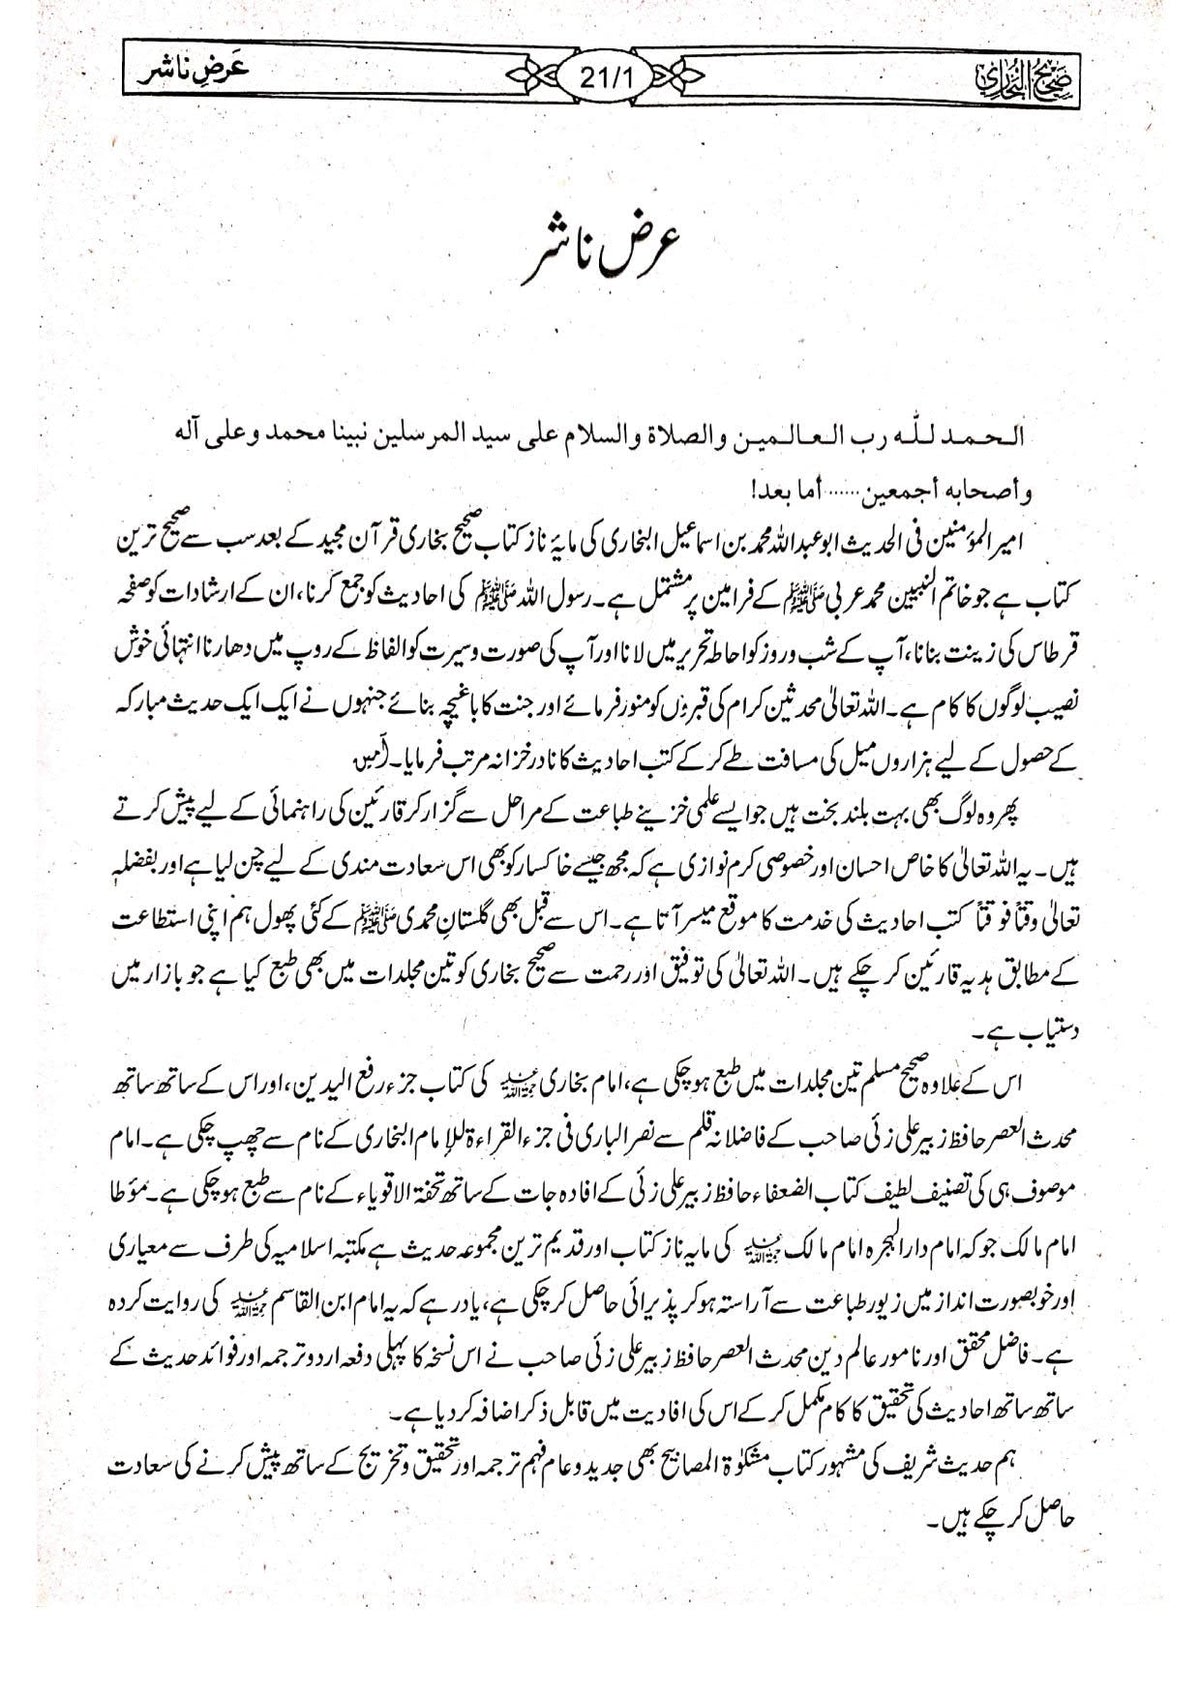 صحیح البخاری 21/1 عَرضِ ناشر
عرض ناشر
الحمد للّٰه رب العالمين والصلاة والسلام على سيد المرسلين نبينا محمد وعلى آله
وأصحابه أجمعين...... أما بعد!
امیر المؤمنین فی الحدیث ابوعبداللہ محمد بن اسماعیل البخاری کی مایۂ ناز کتاب صحیح بخاری قرآن مجید کے بعد سب سے صحیح ترین
کتاب ہے جو خاتم النبیین محمد عربی ﷺ کے فرامین پر مشتمل ہے۔ رسول اللہ ﷺ کی احادیث کو جمع کرنا، ان کے ارشادات کو صفحہ
قرطاس کی زینت بنانا، آپ کے شب و روز کو احاطہ تحریر میں لانا اور آپ کی صورت و سیرت کو الفاظ کے روپ میں دھارنا انتہائی خوش
نصیب لوگوں کا کام ہے۔ اللہ تعالیٰ محدثین کرام کی قبروں کو منور فرمائے اور جنت کا باغیچہ بنائے جنہوں نے ایک ایک حدیث مبارکہ
کے حصول کے لیے ہزاروں میل کی مسافت طے کر کے کتب احادیث کا نادر خزانہ مرتب فرمایا۔ آمین
پھر وہ لوگ بھی بہت بلند بخت ہیں جو ایسے علمی خزینے طباعت کے مراحل سے گزار کر قارئین کی راہنمائی کے لیے پیش کرتے
ہیں۔ یہ اللہ تعالیٰ کا خاص احسان اور خصوصی کرم نوازی ہے کہ مجھ جیسے خاکسار کو بھی اس سعادت مندی کے لیے چن لیا ہے اور بفضلہٖ
تعالیٰ وقتاً فوقتاً کتب احادیث کی خدمت کا موقع میسر آتا ہے۔ اس سے قبل بھی گلستانِ محمدی ﷺ کے کئی پھول ہم اپنی استطاعت
کے مطابق ہدیہ قارئین کر چکے ہیں۔ اللہ تعالیٰ کی توفیق اور رحمت سے صحیح بخاری کو تین مجلدات میں بھی طبع کیا ہے جو بازار میں
دستیاب ہے۔
اس کے علاوہ صحیح مسلم تین مجلدات میں طبع ہو چکی ہے، امام بخاری رحمہ اللہ کی کتاب جزء رفع الیدین، اور اس کے ساتھ ساتھ
محدث العصر حافظ زبیر علی زئی صاحب کے فاضلانہ قلم سے نصر الباری فی جزء القراءة للإمام البخاری کے نام سے چھپ چکی ہے۔ امام
موصوف ہی کی تصنیف لطیف کتاب الضعفاء حافظ زبیر علی زئی کے افادہ جات کے ساتھ تحفۃ الاقویاء کے نام سے طبع ہو چکی ہے۔ مؤطا
امام مالک جو کہ امام دارالہجرہ امام مالک رحمہ اللہ کی مایہ ناز کتاب اور قدیم ترین مجموعہ حدیث ہے مکتبہ اسلامیہ کی طرف سے معیاری
اور خوبصورت انداز میں زیور طباعت سے آراستہ ہو کر پذیرائی حاصل کر چکی ہے، یاد رہے کہ یہ امام ابن القاسم رحمہ اللہ کی روایت کردہ
ہے۔ فاضل محقق اور نامور عالم دین محدث العصر حافظ زبیر علی زئی صاحب نے اس نسخہ کا پہلی دفعہ اردو ترجمہ اور فوائد حدیث کے
ساتھ ساتھ احادیث کی تحقیق کا کام مکمل کر کے اس کی افادیت میں قابل ذکر اضافہ کر دیا ہے۔
ہم حدیث شریف کی مشہور کتاب مشکوٰۃ المصابیح بھی جدید و عام فہم ترجمہ اور تحقیق و تخریج کے ساتھ پیش کرنے کی سعادت
حاصل کر چکے ہیں۔